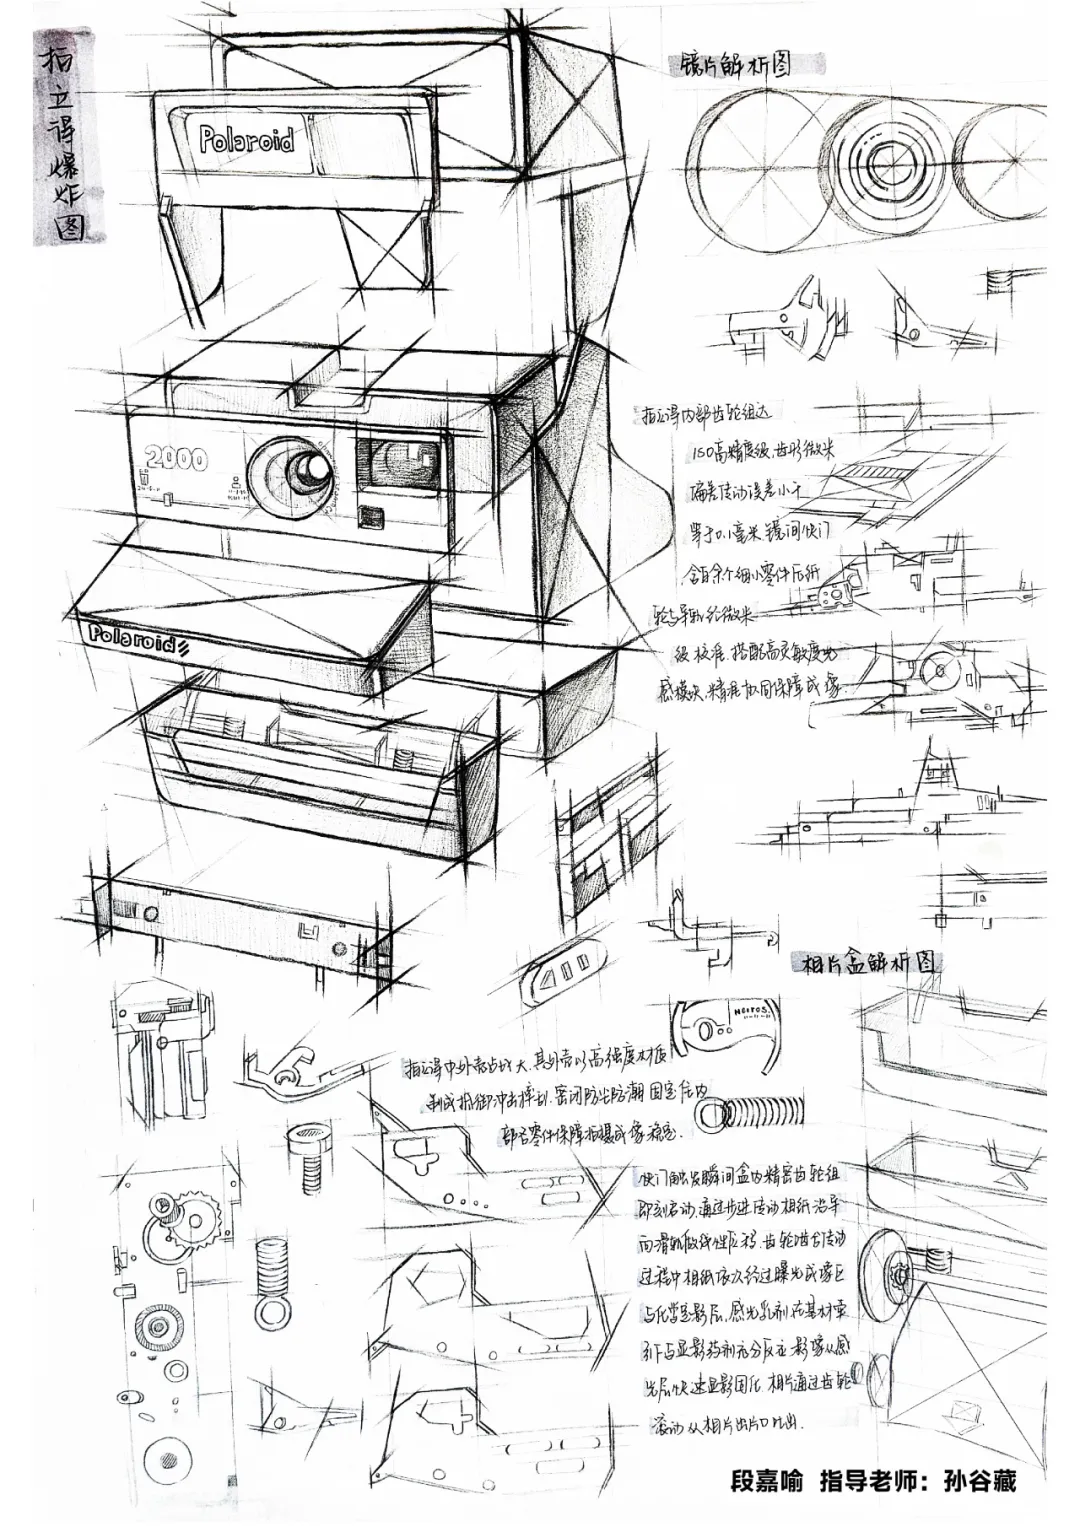 拍立得爆炸图
Polaroid
2000
Polaroid
镜片解析图
拍立得内部齿轮组达
ISO高精度级,齿形微米
偏差传动误差小于
等于0.1毫米 镜间快门
含百余个细小零件 压纸
轮与导轨经微米
级校准.搭配高灵敏度光
感模块,精准协同保障成像
相片盒解析图
拍立得中外壳占比大.其外壳以高强度材质
制成抵御冲击摔划.密闭防尘防潮 固定住内
部各零件保障拍摄成像稳定.
快门触发瞬间盒内精密齿轮组
即刻启动,通过步进传动相纸沿导
向滑轨做线性位移.齿轮啮合传动
过程中相纸依次经过曝光成像区
与化学显影层,感光乳剂在基材牵
引下与显影药剂充分反应 影像从感
光层快速显影固化.相片通过齿轮
滚动从相片出片口吐出.
段嘉喻 指导老师：孙谷藏